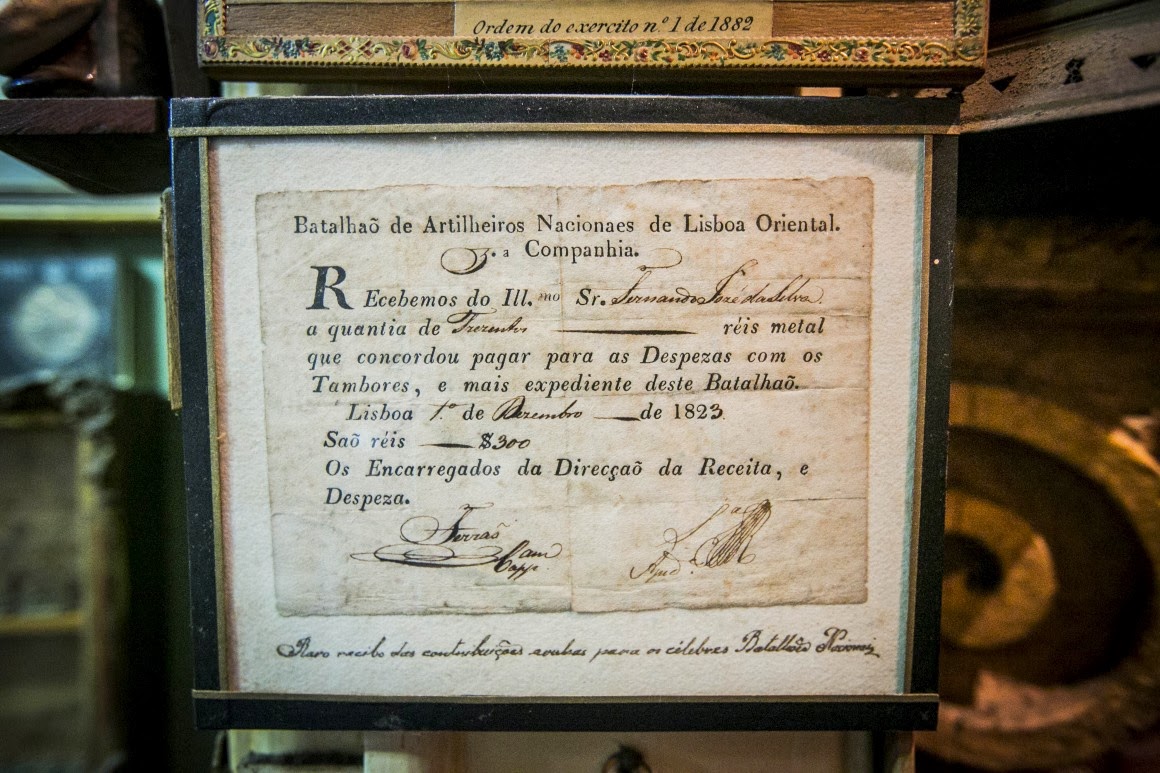 Ordem do exercito n.º 1 de 1882
Batalhaõ de Artilheiros Nacionaes de Lisboa Oriental.
3.ª Companhia.
REcebemos do Ill.mo Sr. Fernando José da Silva
a quantia de Trezentos réis metal
que concordou pagar para as Despezas com os
Tambores, e mais expediente deste Batalhaõ.
Lisboa 1.º de Dezembro de 1823.
Saõ réis $300
Os Encarregados da Direcçaõ da Receita, e
Despeza.
Ferraõ
Raro recibo das contribuições para os célebres Batalhões Nacionais